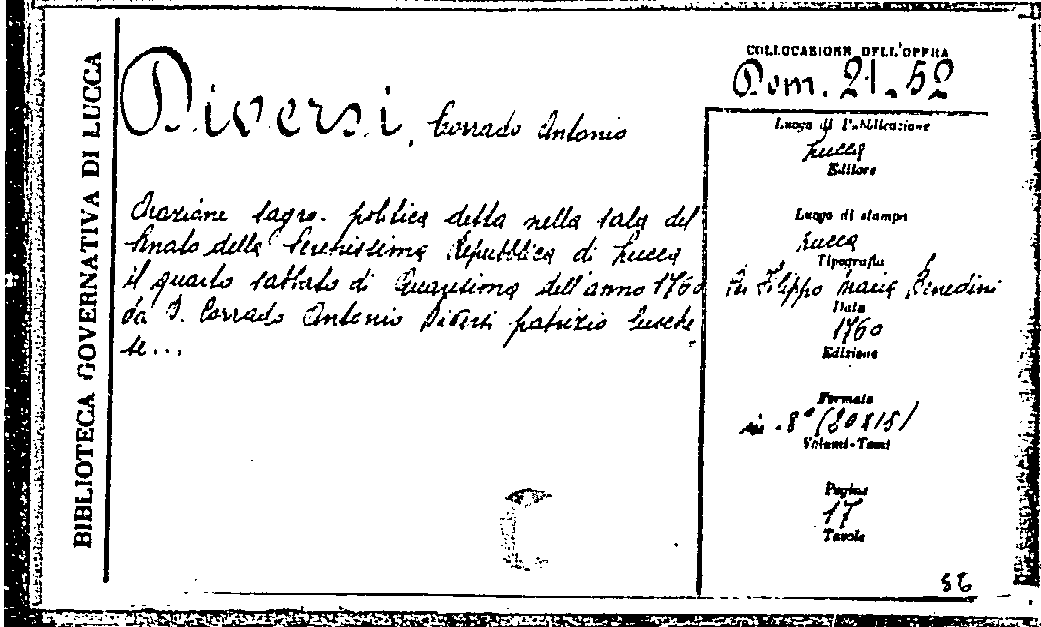 BIBLIOTECA GOVERNATIVA DI LUCCA
Diversi, Corrado Antonio
Orazione sagro-politica detta nella sala del
Senato della Serenissima Repubblica di Lucca
il quarto sabbato di Quaresima dell'anno 1760
da D. Corrado Antonio Diversi patrizio lucche-
se...
COLLOCAZIONE DELL'OPERA
Dom. 21.52
Luogo di Pubblicazione
Lucca
Editore
Luogo di stampa
Lucca
Tipografia
Per Filippo Maria Benedini
Data
1760
Edizione
Formato
in-8° (20x15)
Volumi-Tomi
Pagine
17
Tavole